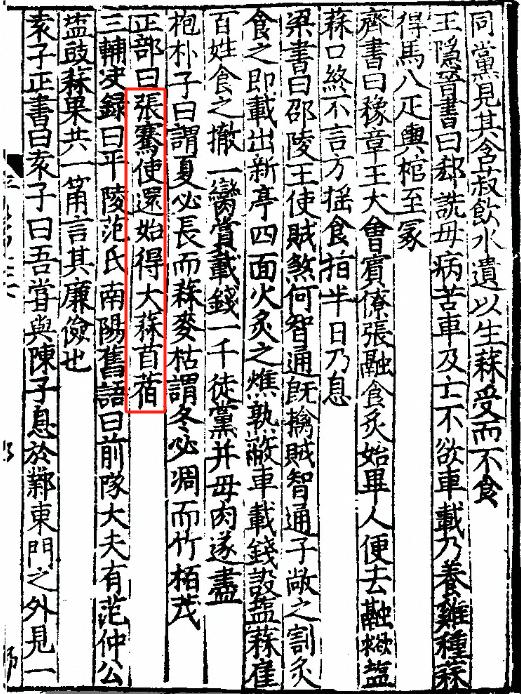 同黨見其含菽飲水遺以生蒜受而不食
王隱晉書曰郄詵母病苦車及亡不欲車載乃養雞種蒜
得馬八疋輿棺至冢
齊書曰豫章王大會賓僚張融食炙始畢人便去融欲塩
蒜口終不言方揺食拍半日乃息
梁書曰邵陵王使賊煞何智通旣擒賊智通子敞之割炙
食之即載出新亭四面火炙之燋孰敝車載錢設塩蒜雇
百姓食之撤一臠賞載錢一千徒黨并母肉遂盡
抱朴子曰謂夏必長而蒜麥枯謂冬必凋而竹栢茂
正部曰張騫使還始得大蒜苜蓿
三輔决録曰平陵范氏南陽舊語曰前隊大夫有范仲公
塩豉蒜果共一筩言其廉儉也
袁子正書曰袁子曰吾嘗與陳子息於鄴東門之外見一